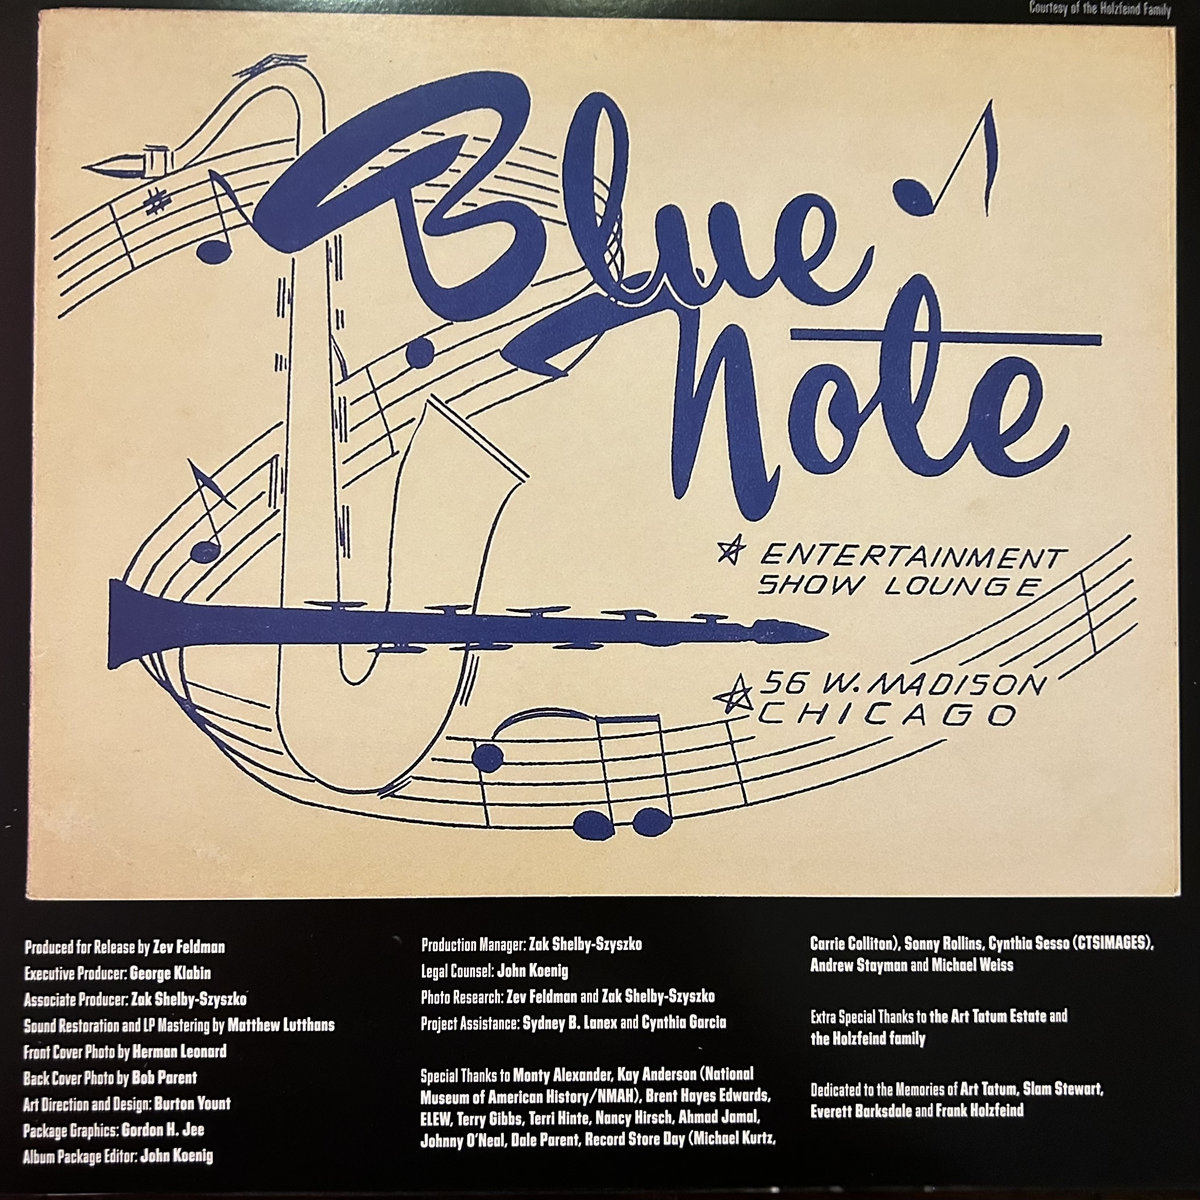 Courtesy of the Holzfeind Family
Blue
Note
ENTERTAINMENT
SHOW LOUNGE
56 W. MADISON
CHICAGO
Produced for Release by Zev Feldman
Executive Producer: George Klabin
Associate Producer: Zak Shelby-Szyszko
Sound Restoration and LP Mastering by Matthew Lutthans
Front Cover Photo by Herman Leonard
Back Cover Photo by Bob Parent
Art Direction and Design: Burton Yount
Package Graphics: Gordon H. Jee
Album Package Editor: John Koenig
Production Manager: Zak Shelby-Szyszko
Legal Counsel: John Koenig
Photo Research: Zev Feldman and Zak Shelby-Szyszko
Project Assistance: Sydney B. Lanex and Cynthia Garcia
Special Thanks to Monty Alexander, Kay Anderson (National
Museum of American History/NMAH), Brent Hayes Edwards,
ELEW, Terry Gibbs, Terri Hinte, Nancy Hirsch, Ahmad Jamal,
Johnny O'Neal, Dale Parent, Record Store Day (Michael Kurtz,
Carrie Colliton), Sonny Rollins, Cynthia Sesso (CTSIMAGES),
Andrew Stayman and Michael Weiss
Extra Special Thanks to the Art Tatum Estate and
the Holzfeind family
Dedicated to the Memories of Art Tatum, Slam Stewart,
Everett Barksdale and Frank Holzfeind